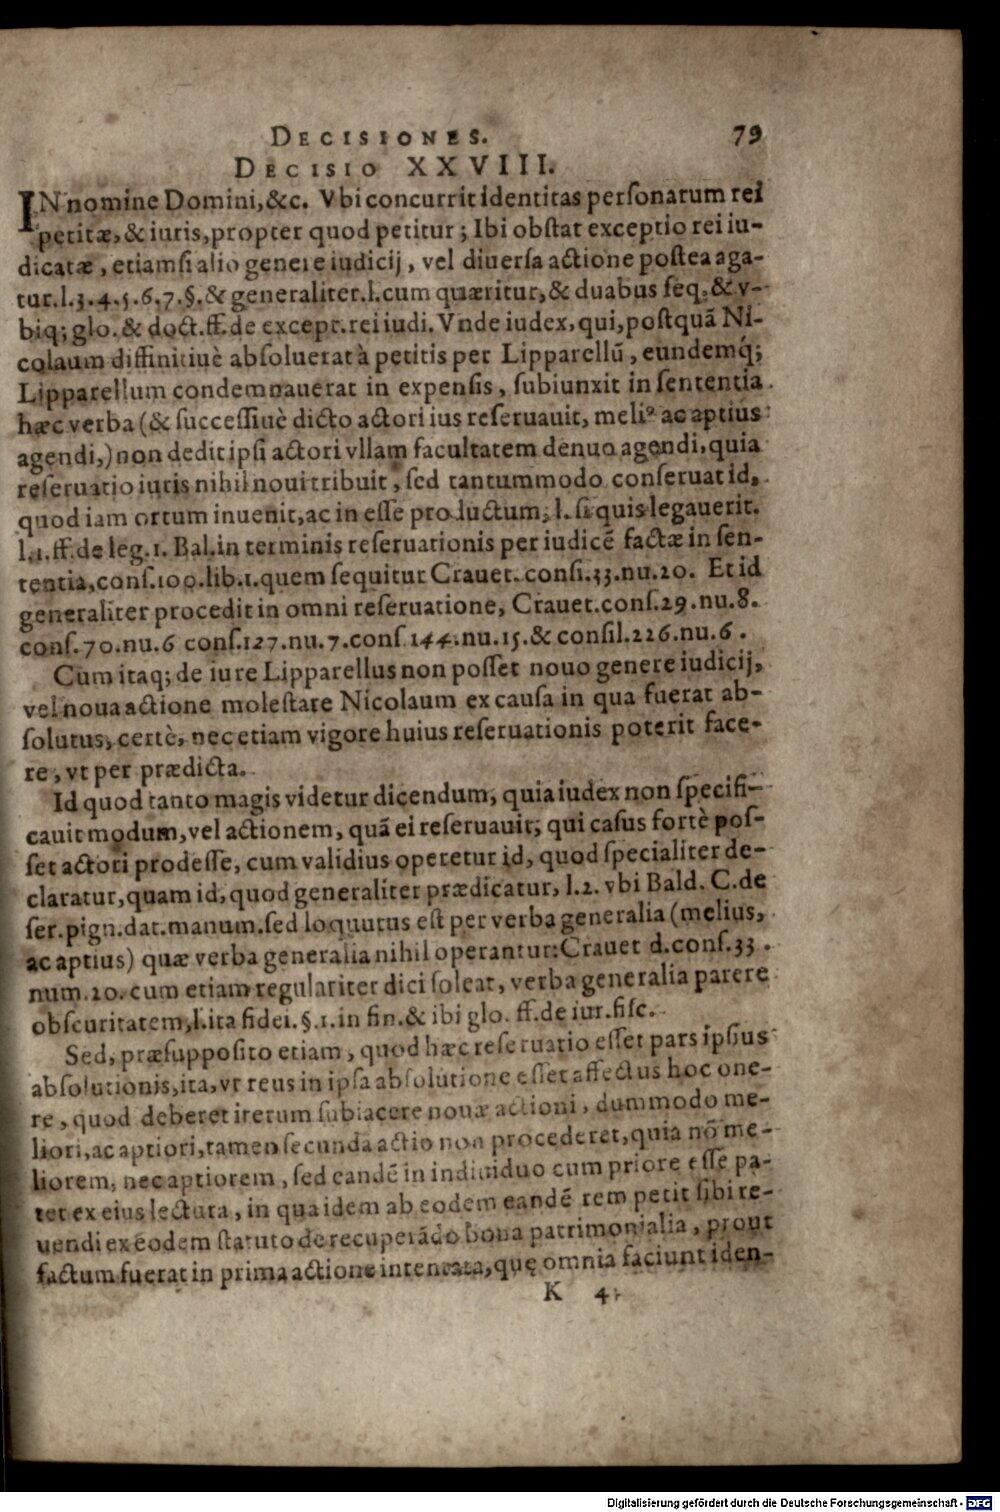 DECISIONES. 79
DECISIO XXVIII.
IN nomine Domini, &c. Vbi concurrit identitas personarum rei
petitæ, & iuris, propter quod petitur; Ibi obstat exceptio rei iu-
dicatæ, etiamsi alio genere iudicij, vel diuersa actione postea aga-
tur. l.3.4.5.6.7.§.& generaliter. l. cum quæritur, & duabus seq. & v-
biq; glo. & doct. ff. de except. rei iudi. Vnde iudex, qui, postquã Ni-
colaum diffinitiuè absoluerat à petitis per Lipparellũ, eundemq́;
Lipparellum condemnauerat in expensis, subiunxit in sententia
hæc verba (& successiuè dicto actori ius reseruauit, meliꝰ ac aptius
agendi,) non dedit ipsi actori vllam facultatem denuo agendi, quia
reseruatio iuris nihil noui tribuit, sed tantummodo conseruat id,
quod iam ortum inuenit, ac in esse productum, l. si quis legauerit.
l.1. ff. de leg. 1. Bal. in terminis reseruationis per iudicẽ factæ in sen-
tentia, cons. 100. lib. 1. quem sequitur Crauet. consi. 33. nu. 20. Et id
generaliter procedit in omni reseruatione, Crauet. cons. 29. nu. 8.
cons. 70. nu. 6 cons. 127. nu. 7. cons 144. nu. 15. & consil. 226. nu. 6.
Cum itaq; de iure Lipparellus non posset nouo genere iudicij,
vel noua actione molestare Nicolaum ex causa in qua fuerat ab-
solutus, certè, nec etiam vigore huius reseruationis poterit face-
re, vt per prædicta.
Id quod tanto magis videtur dicendum, quia iudex non specifi-
cauit modum, vel actionem, quã ei reseruauit; qui casus fortè pos-
set actori prodesse, cum validius operetur id, quod specialiter de-
claratur, quam id, quod generaliter prædicatur, l.2. vbi Bald. C. de
ser. pign. dat. manum. sed loquutus est per verba generalia (melius,
ac aptius) quæ verba generalia nihil operantur: Crauet d. cons. 33.
num. 20. cum etiam regulariter dici soleat, verba generalia parere
obscuritatem, l. ita fidei. §.1. in fin. & ibi glo. ff. de iur. fisc.
Sed, præsupposito etiam, quod hæc reseruatio esset pars ipsius
absolutionis, ita, vt reus in ipsa absolutione esset affectus hoc one-
re, quod deberet iterum subiacere nouæ actioni, dummodo me-
liori, ac aptiori, tamen secunda actio non procederet, quia nõ me-
liorem, nec aptiorem, sed eandẽ in indiuiduo cum priore esse pa-
tet ex eius lectura, in qua idem ab eodem eandẽ rem petit sibi re-
uendi ex eodem statuto de recuperãdo bona patrimonialia, prout
factum fuerat in prima actione intentata, quę omnia faciunt iden-
K 4
Digitalisierung gefördert durch die Deutsche Forschungsgemeinschaft - DFG